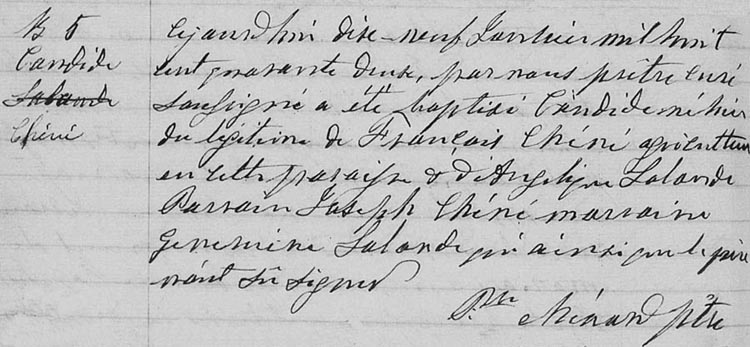 B 5
Candide
Lalande
Chéné
Cejourdhui dix-neuf Janvier mil huit
cent quarante deux, par nous prêtre curé
soussigné a été baptisé Candide né hier
du légitime de François Chéné agriculteur
en cette paroisse & d'Angelique Lalande
Parrain Joseph Chéné marraine
Lalande qui ainsi que le père
n'ont sû signer
P. Ménard ptre